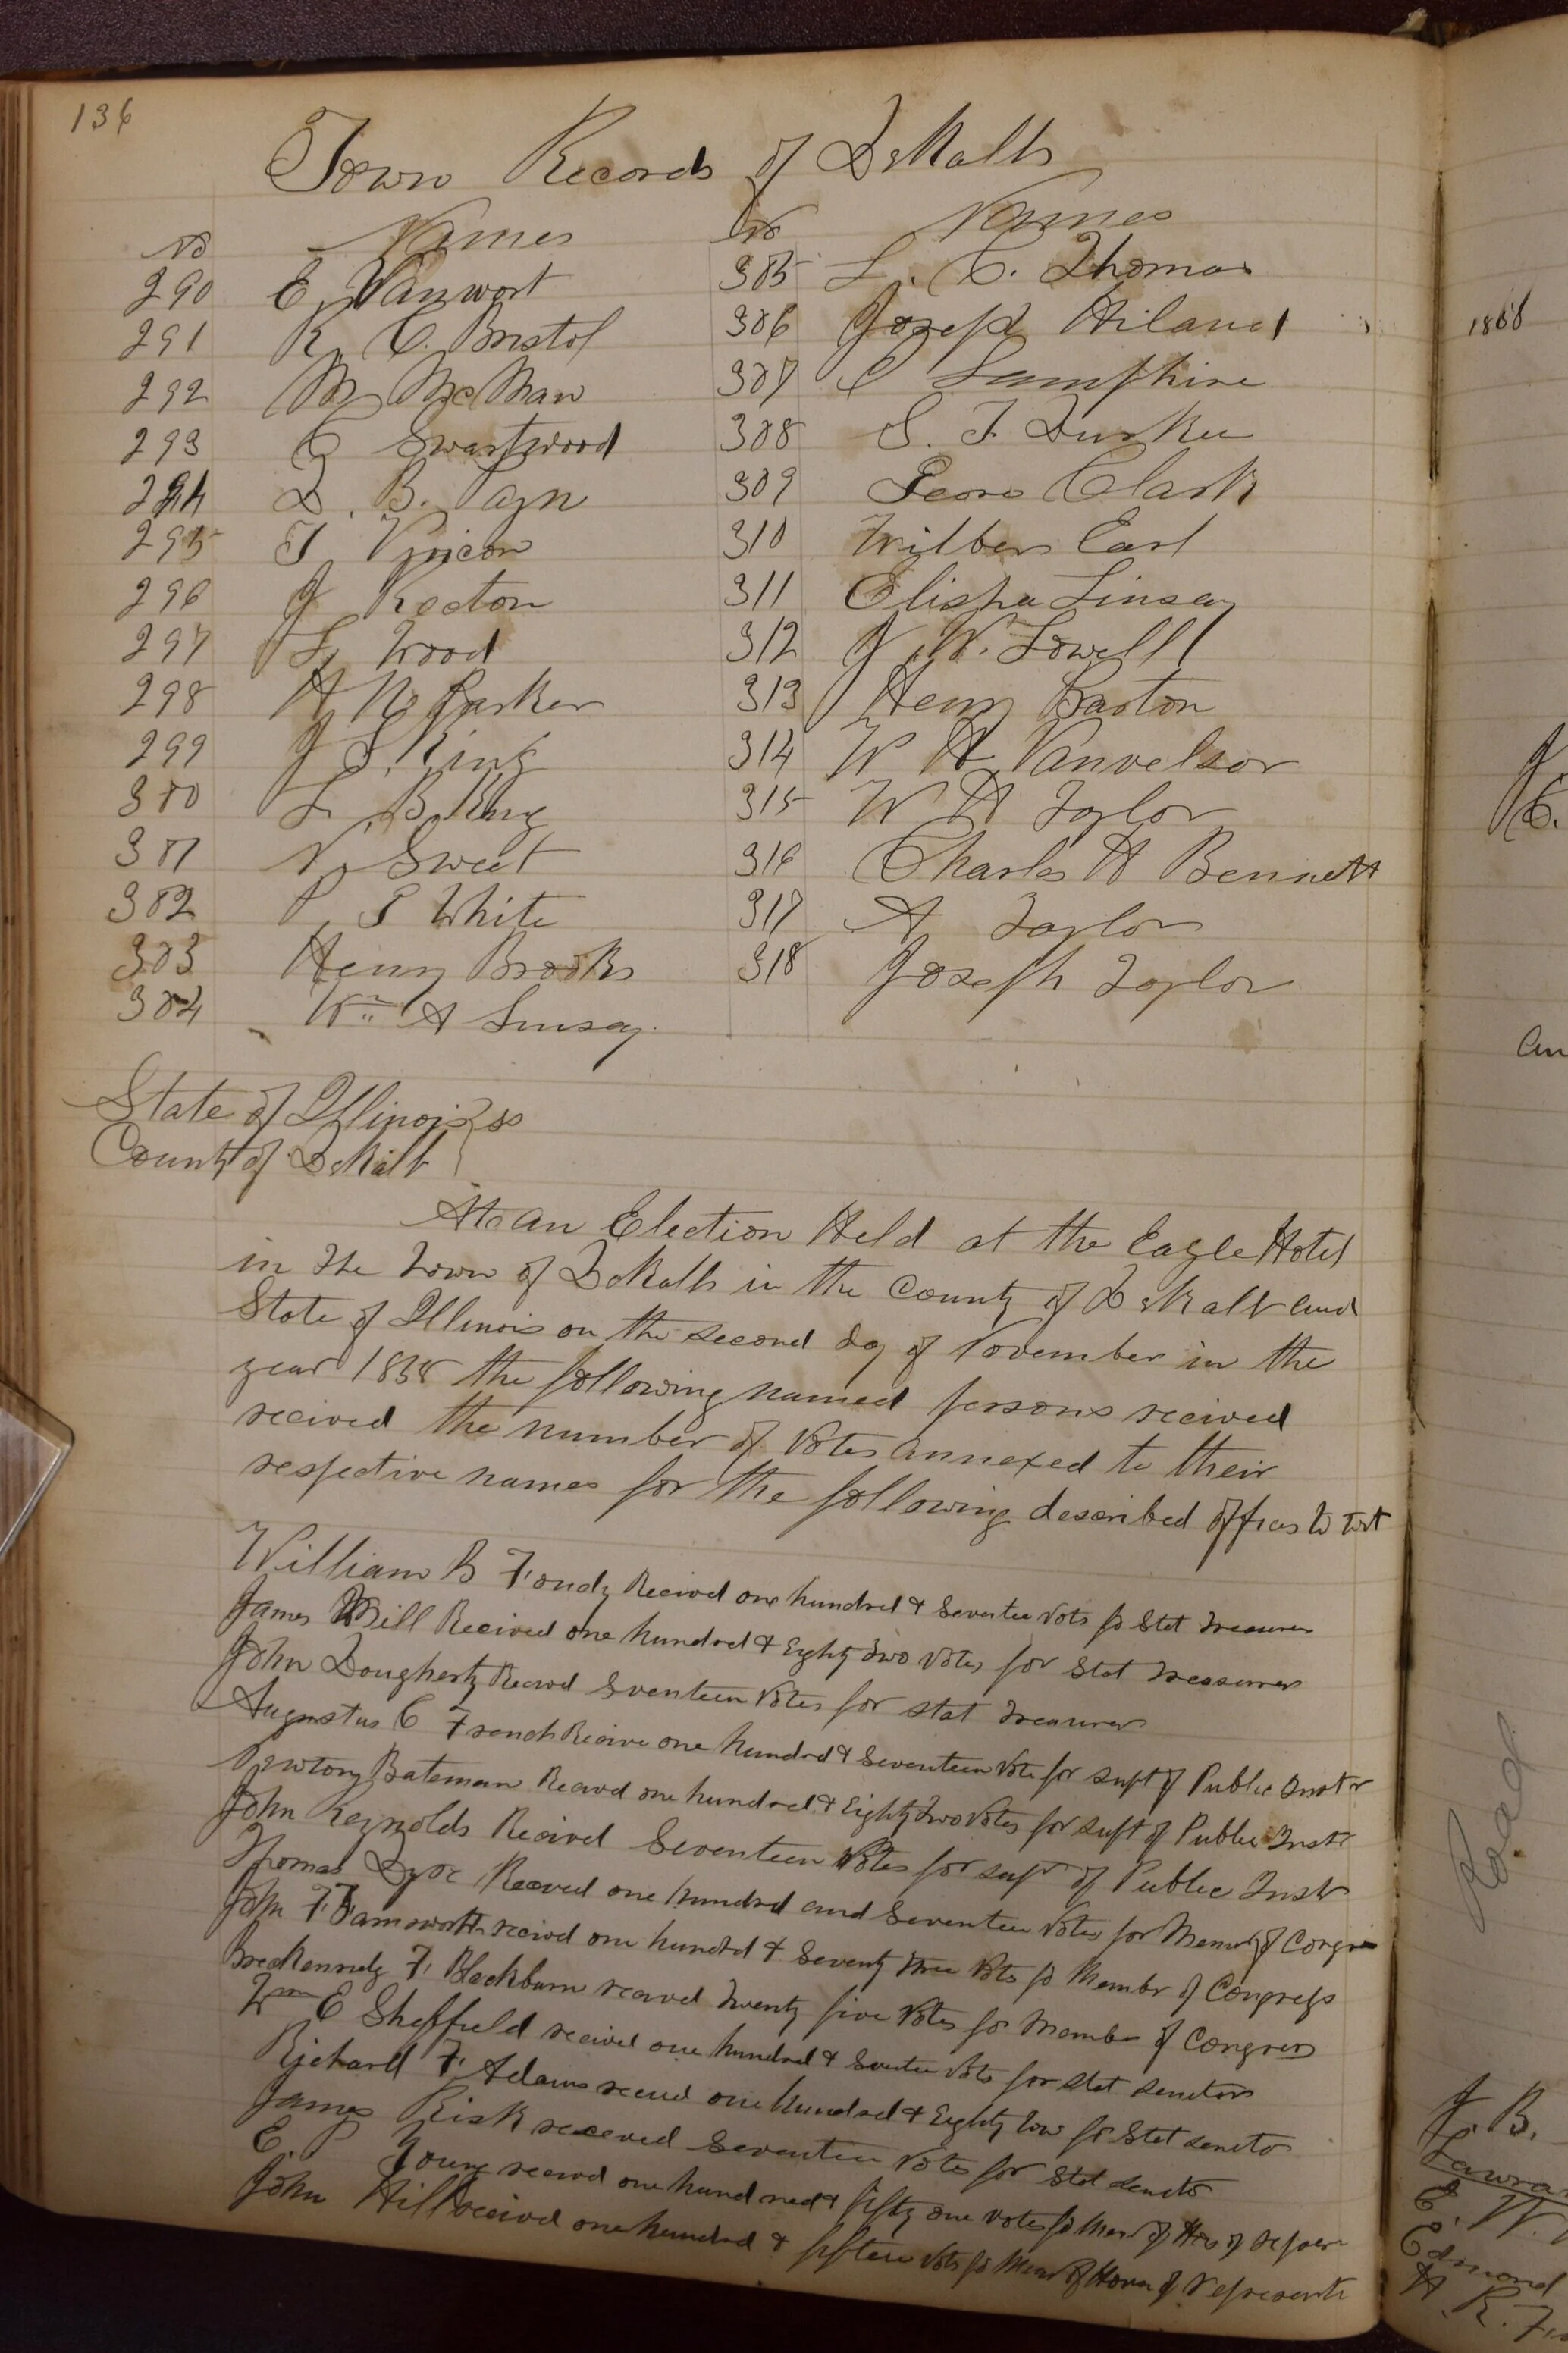 136
Town Records of DeKalb
No Names
290 E, Vanwort
291 R, C. Bristol
292 M McMaw
293 C Swartwood
294 D. B. Payn
295 T
296 J Kecton
297 L, Wood
298 H N Parker
299 J S. King
300 L, B. King
301 N, Sweet
302 P, S White
303 Henry Brooks
304 Wm A Linsay
No Names
305 L. C. Thomas
306 Joseph Hiland
307 C Lamphire
308 S. T. Durkee
309 Clark
310 Wilber Earl
311 Elisha Linsay
312 J. W. Lowell
313 Henry Barton
314 W H Vanvelsor
315 W H Taylor
316 Charles H Bennett
317 A Taylor
318 Joseph Taylor
State of Illinois } ss
County of DeKalb
At an Election Held at the Eagle Hotel
in The Town of DeKalb in the County of DeKalb and
State of Illinois on the second day of November in the
year 1858 the following named persons recived
recived the number of Votes annexed to their
respective names for the following described offices to wit
William B Fondy Recived one hundred & Seventee Vots fo Stat Treasurer
James Mill Recived one hundred & Eighty Two Votes for Stat Treasurer
John Dougherty Recivd Seventeen Votes for stat Treasurer
Augustus C French Recive one hundrd & Seventeen Vote for supt of Public Instr
Newton Bateman Recivd one hundred & Eighty Two Votes for supt of Public Instr
John Reynolds Recived Seventeen Votes for supt of Public Instr
Thomas Dyer Receved one hundrd and Seventeen Votes for Member of Congres
John F Farnsworth recived one hundrd & Seventy three Vots fo Membr of Congress
Breckennidg F, Blackburn recived Twenty five Votes for Member of Congress
Wm E Sheffield recived one hundred & Seventee Vots for stat senator
Richard F, Adams recevd one hundred & Eighty Tow fo Stat senator
James Risk receved Seventeen Votes for Stat senator
E. P Young receivd one hundred & fifty one votes fo Mem of Hos of represn
John Hill recived one hundrd & fifteen Vots fo Mem of House of representi
1858
J
C.
an
Road
J. B.
E. W.
Edmond
H. R.